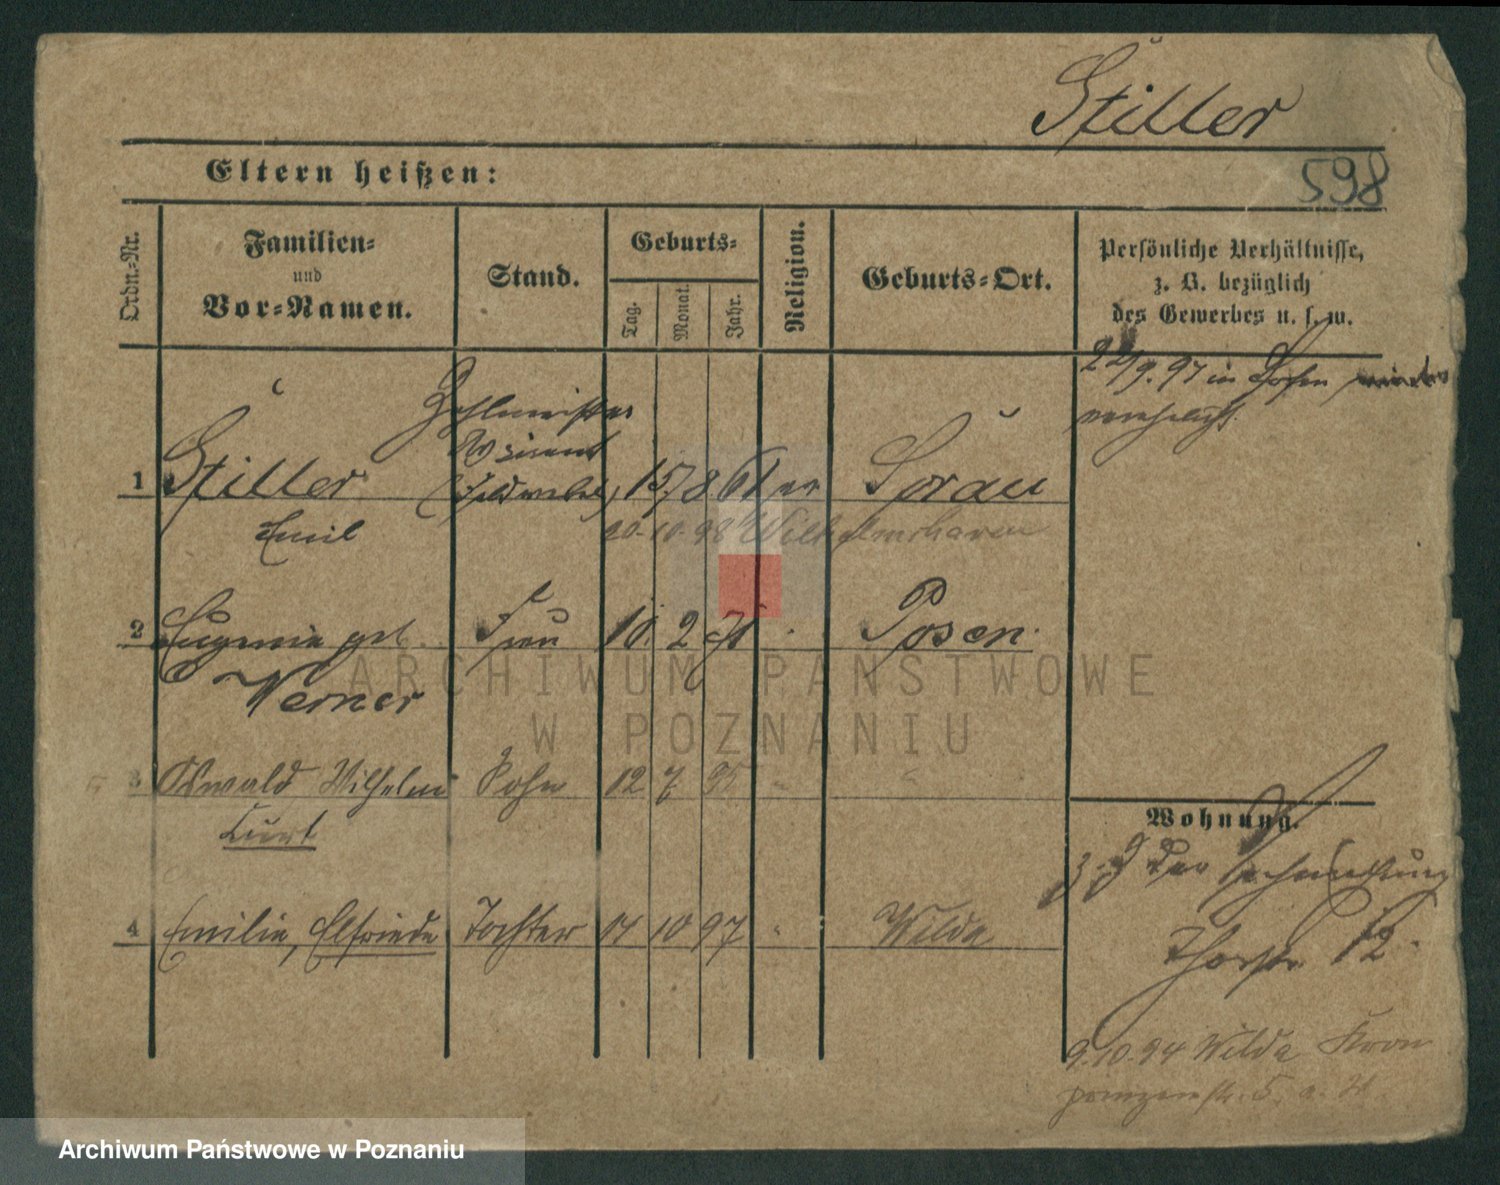 Stiller
Eltern heißen:
598
Ordn.-Nr.
Familien-
und
Vor-Namen.
Stand.
Geburts-
Tag.
Monat.
Jahr.
Religion.
Geburts-Ort.
Persönliche Verhältnisse,
z. B. bezüglich
des Gewerbes u. s. w.
22/9. 97 in Posen
verehelicht.
Zahlmeister
Aspirant
1 Stiller (Feldwebel) 15 8 61 ev Sorau
Emil
20.10.98 Wilhelmshaven
2 Eugenie geb. Frau 10. 2 71 Posen.
Werner
ARCHIWUM PAŃSTWOWE
W POZNANIU
3 Oswald Wilhelm Sohn 12 7 95 "
Kurt
Wohnung.
z. Z der
4 Emilie, Elfriede Tochter 14 10 97 " Wilda
Thorstr 12.
9.10.94 Wilda Kron
prinzenstr. 5.
Archiwum Państwowe w Poznaniu